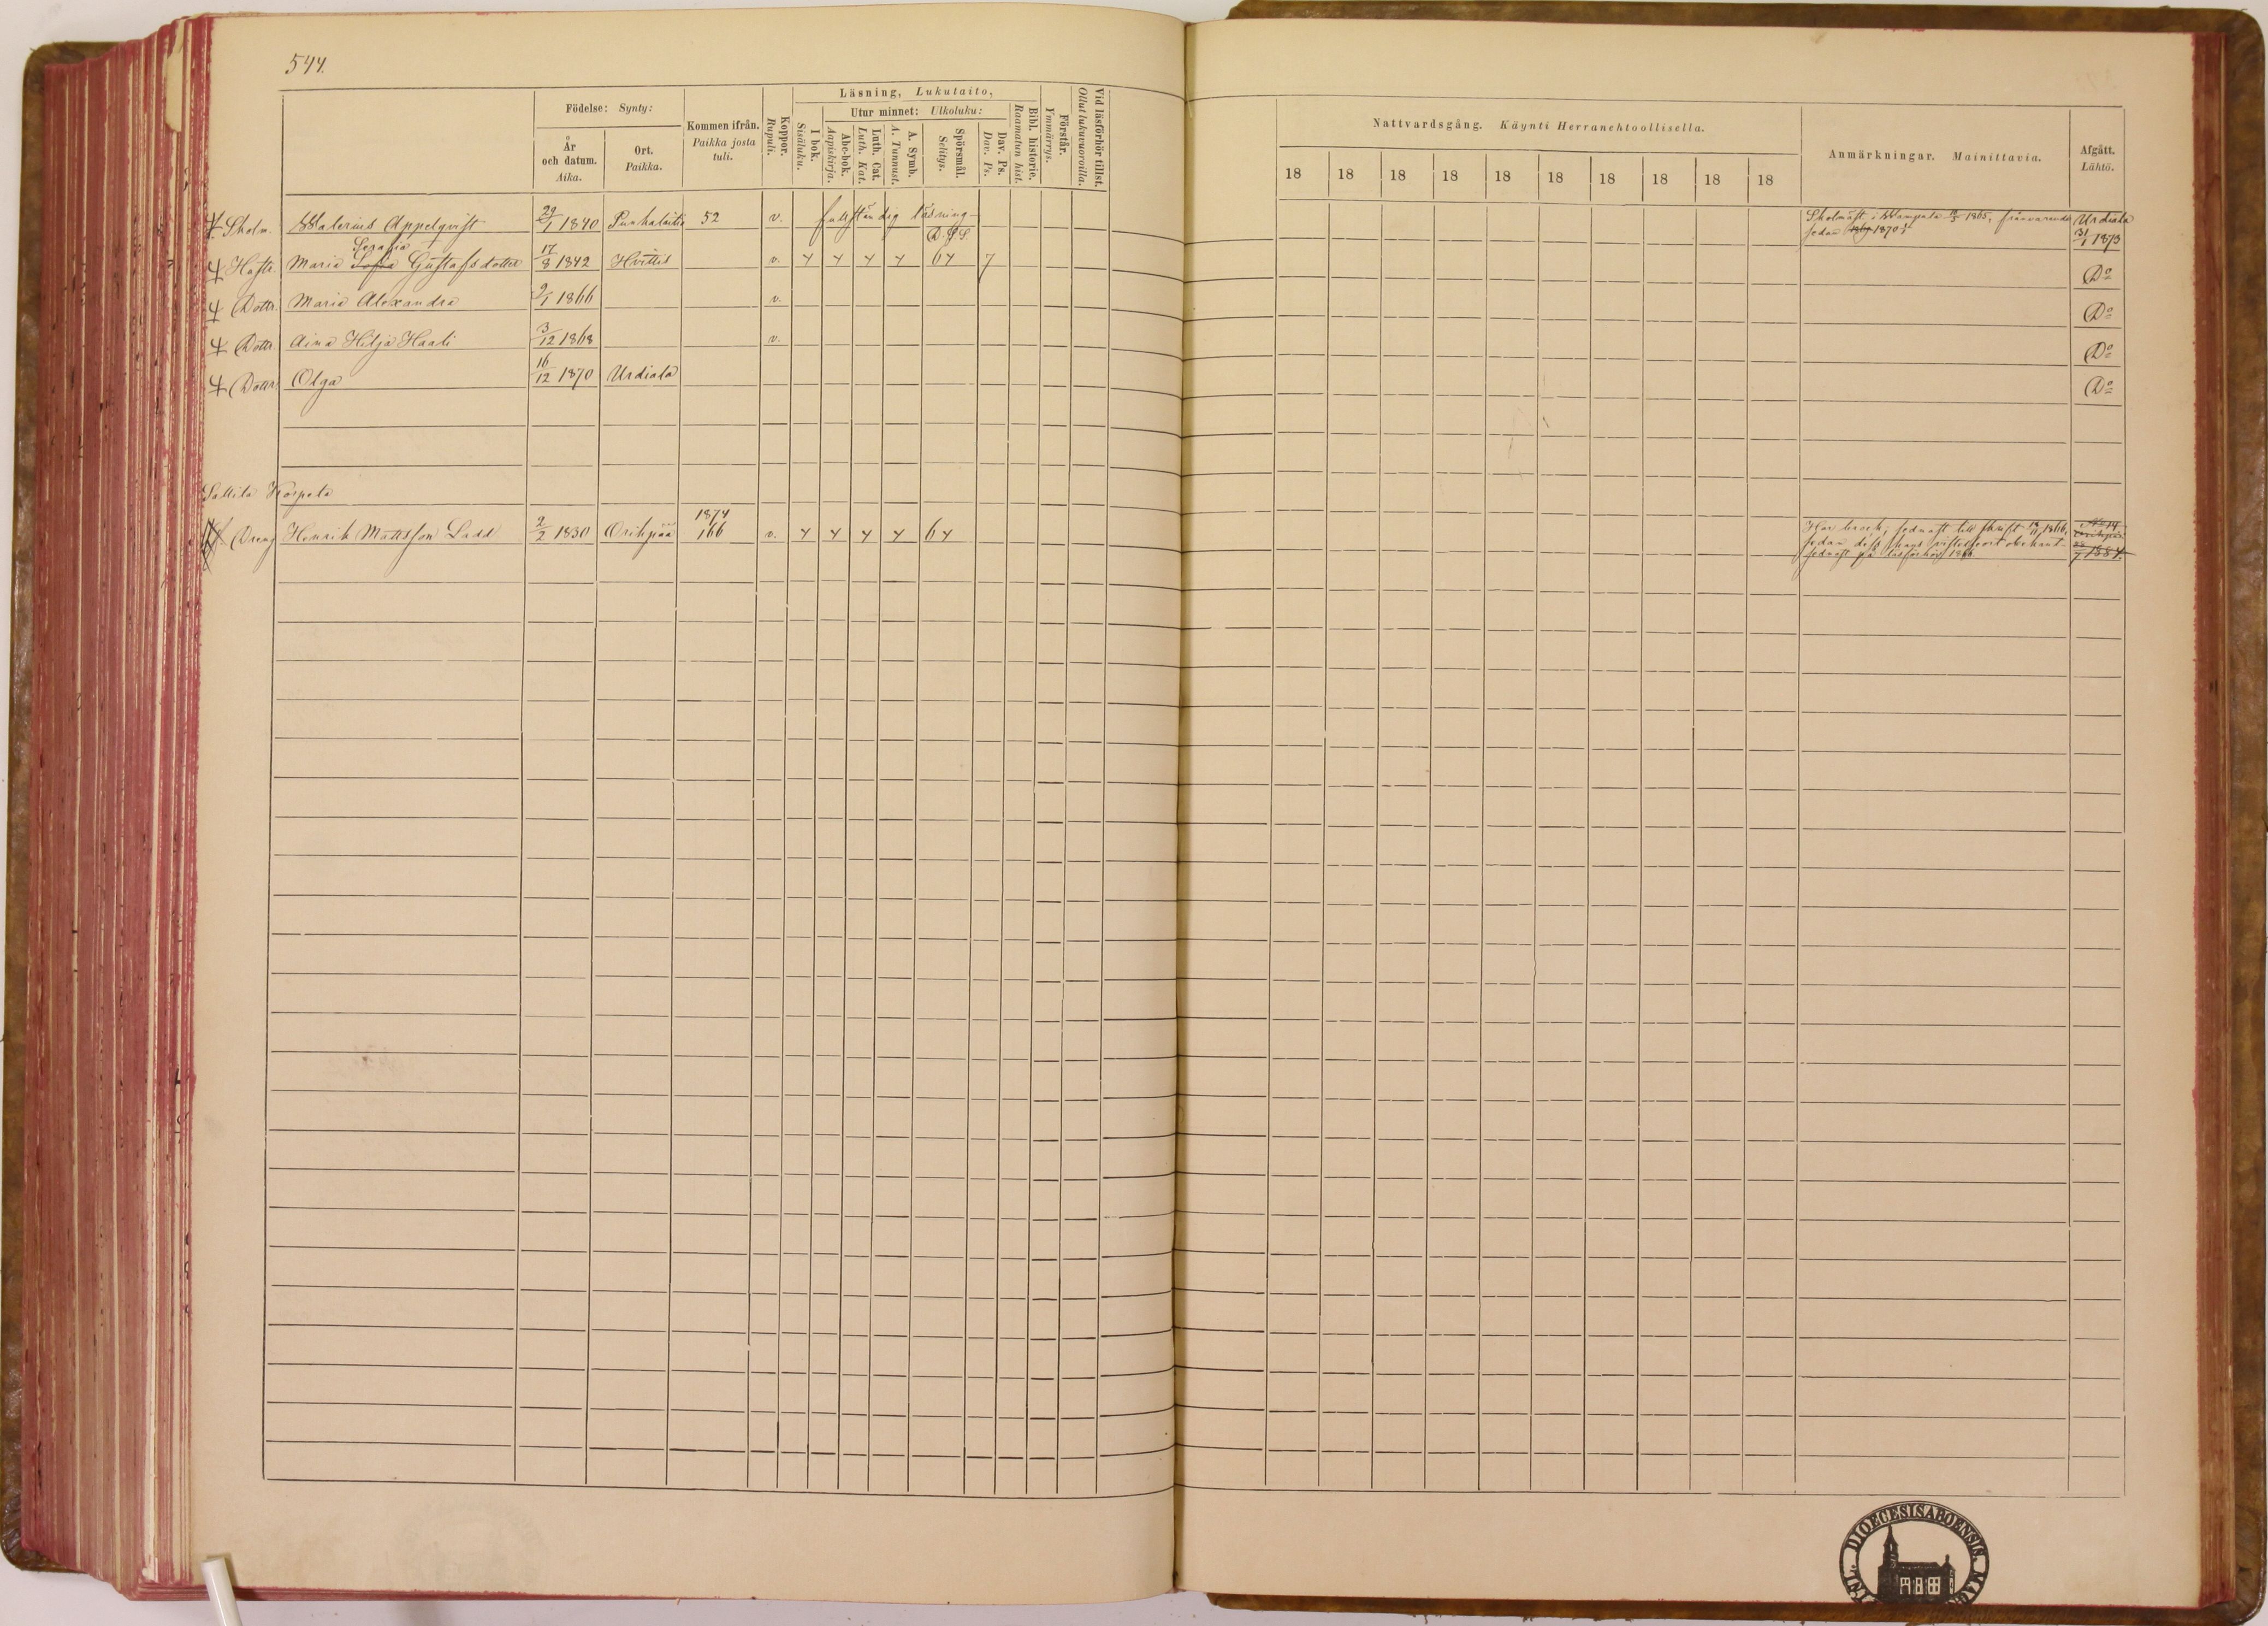 544.
Födelse: Synty:
År och datum. Aika.
Ort. Paikka.
Kommen ifrån. Paikka josta tuli.
Koppor. Rupuli.
Läsning, Lukutaito,
I bok. Sisäluku.
Utur minnet: Ulkoluku:
Abc-bok. Aapiskirja.
Luth. Cat. Luth. Kat.
A. Symb. A. Tunnust.
Spörsmål. Selitys.
Dav. Ps. Dav. Ps.
Bibl. historie. Raamatun hist.
Förstår. Ymmärrys.
Vid läsförhör tillst. Ollut lukuvuoroilla.
Nattvardsgång. Käynti Herranehtoollisella.
18 18 18 18 18 18 18 18 18 18
Anmärkningar. Mainittavia.
Afgått. Lähtö.
Skolm. Walerius Appelqvist 29/1 1840 Punkalaitio 52 v. fullständig läsning Skolmäst. i Wampula 1865, frånvarande Urdiala
D. J. S. sedan 1870 31/1 1873
Serafia
Hustr. Maria Sofia Gustafsdotter 17/8 1842 Hvittis v. 4 4 4 4 64 7 Do
Dottr. Maria Alexandra 9/1 1866 v. Do
Dottr. Aina Hilja Haali 3/12 1868 v. Do
Dottr. Olga 16/12 1870 Urdiala Do
Sallila Korpela
1874
Dreng Henrik Mattsson Ladd 2/2 1830 Oripää 166 v. 4 4 4 4 64 Har bräck, sednast till skrift 1866,
sedan dess hans vistelseort obekant
sednast på läsförhör 1866 1884.
DIOECESIS ABOENSIS